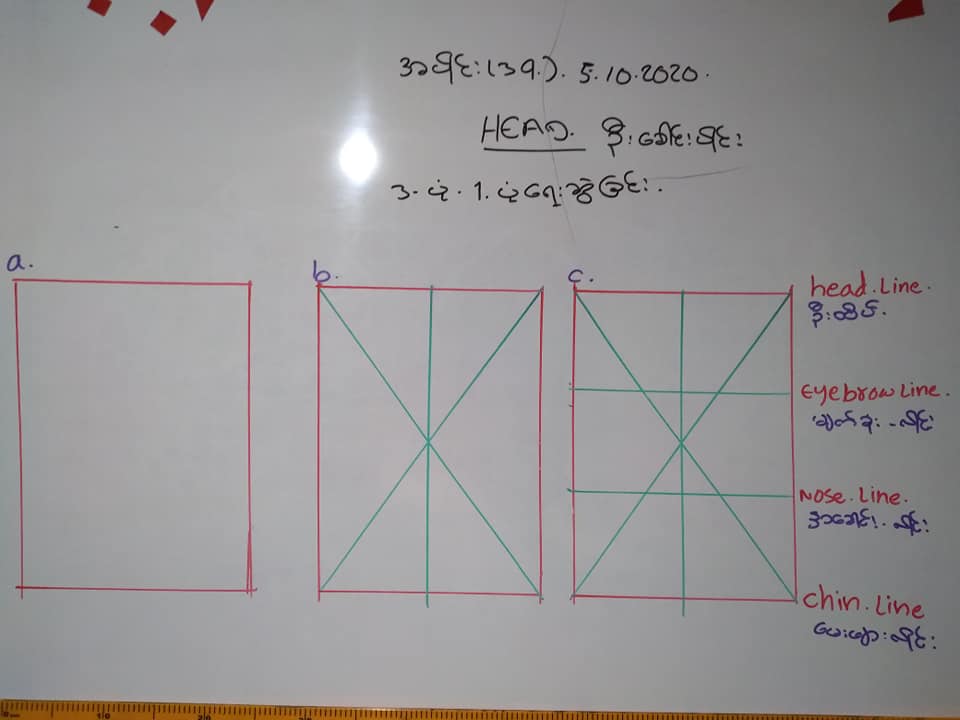 5.10.2020.
HEAD. ဦးခေါင်းပိုင်း
၃-ပုံ. 1. ပုံရေးဆွဲခြင်း.
a.
b.
c.
head.Line.
ဦးထိပ်.
Eyebrow Line.
မျက်ခုံး-လိုင်း
Nose.Line.
နှာခေါင်း. လိုင်း
Chin.Line
မေးဖျား လိုင်း